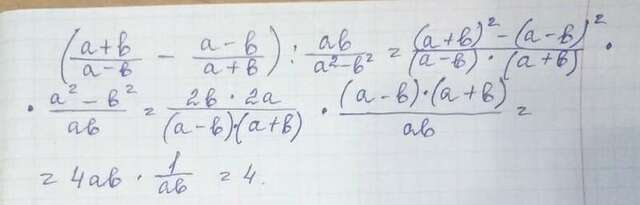 (a+b/a-b - a-b/a+b) : ab/a²-b² = (a+b)²-(a-b)²/(a-b)·(a+b) ·
· a²-b²/ab = 2b·2a/(a-b)·(a+b) · (a-b)·(a+b)/ab =
= 4ab · 1/ab = 4.